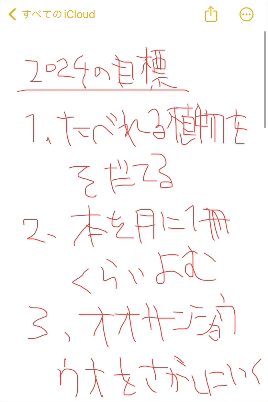 すべてのiCloud
2024の目標
1、たべれる植物を
そだてる
2、本を月に1冊
くらいよむ
3、オオサンショウ
ウオをさがしにいく